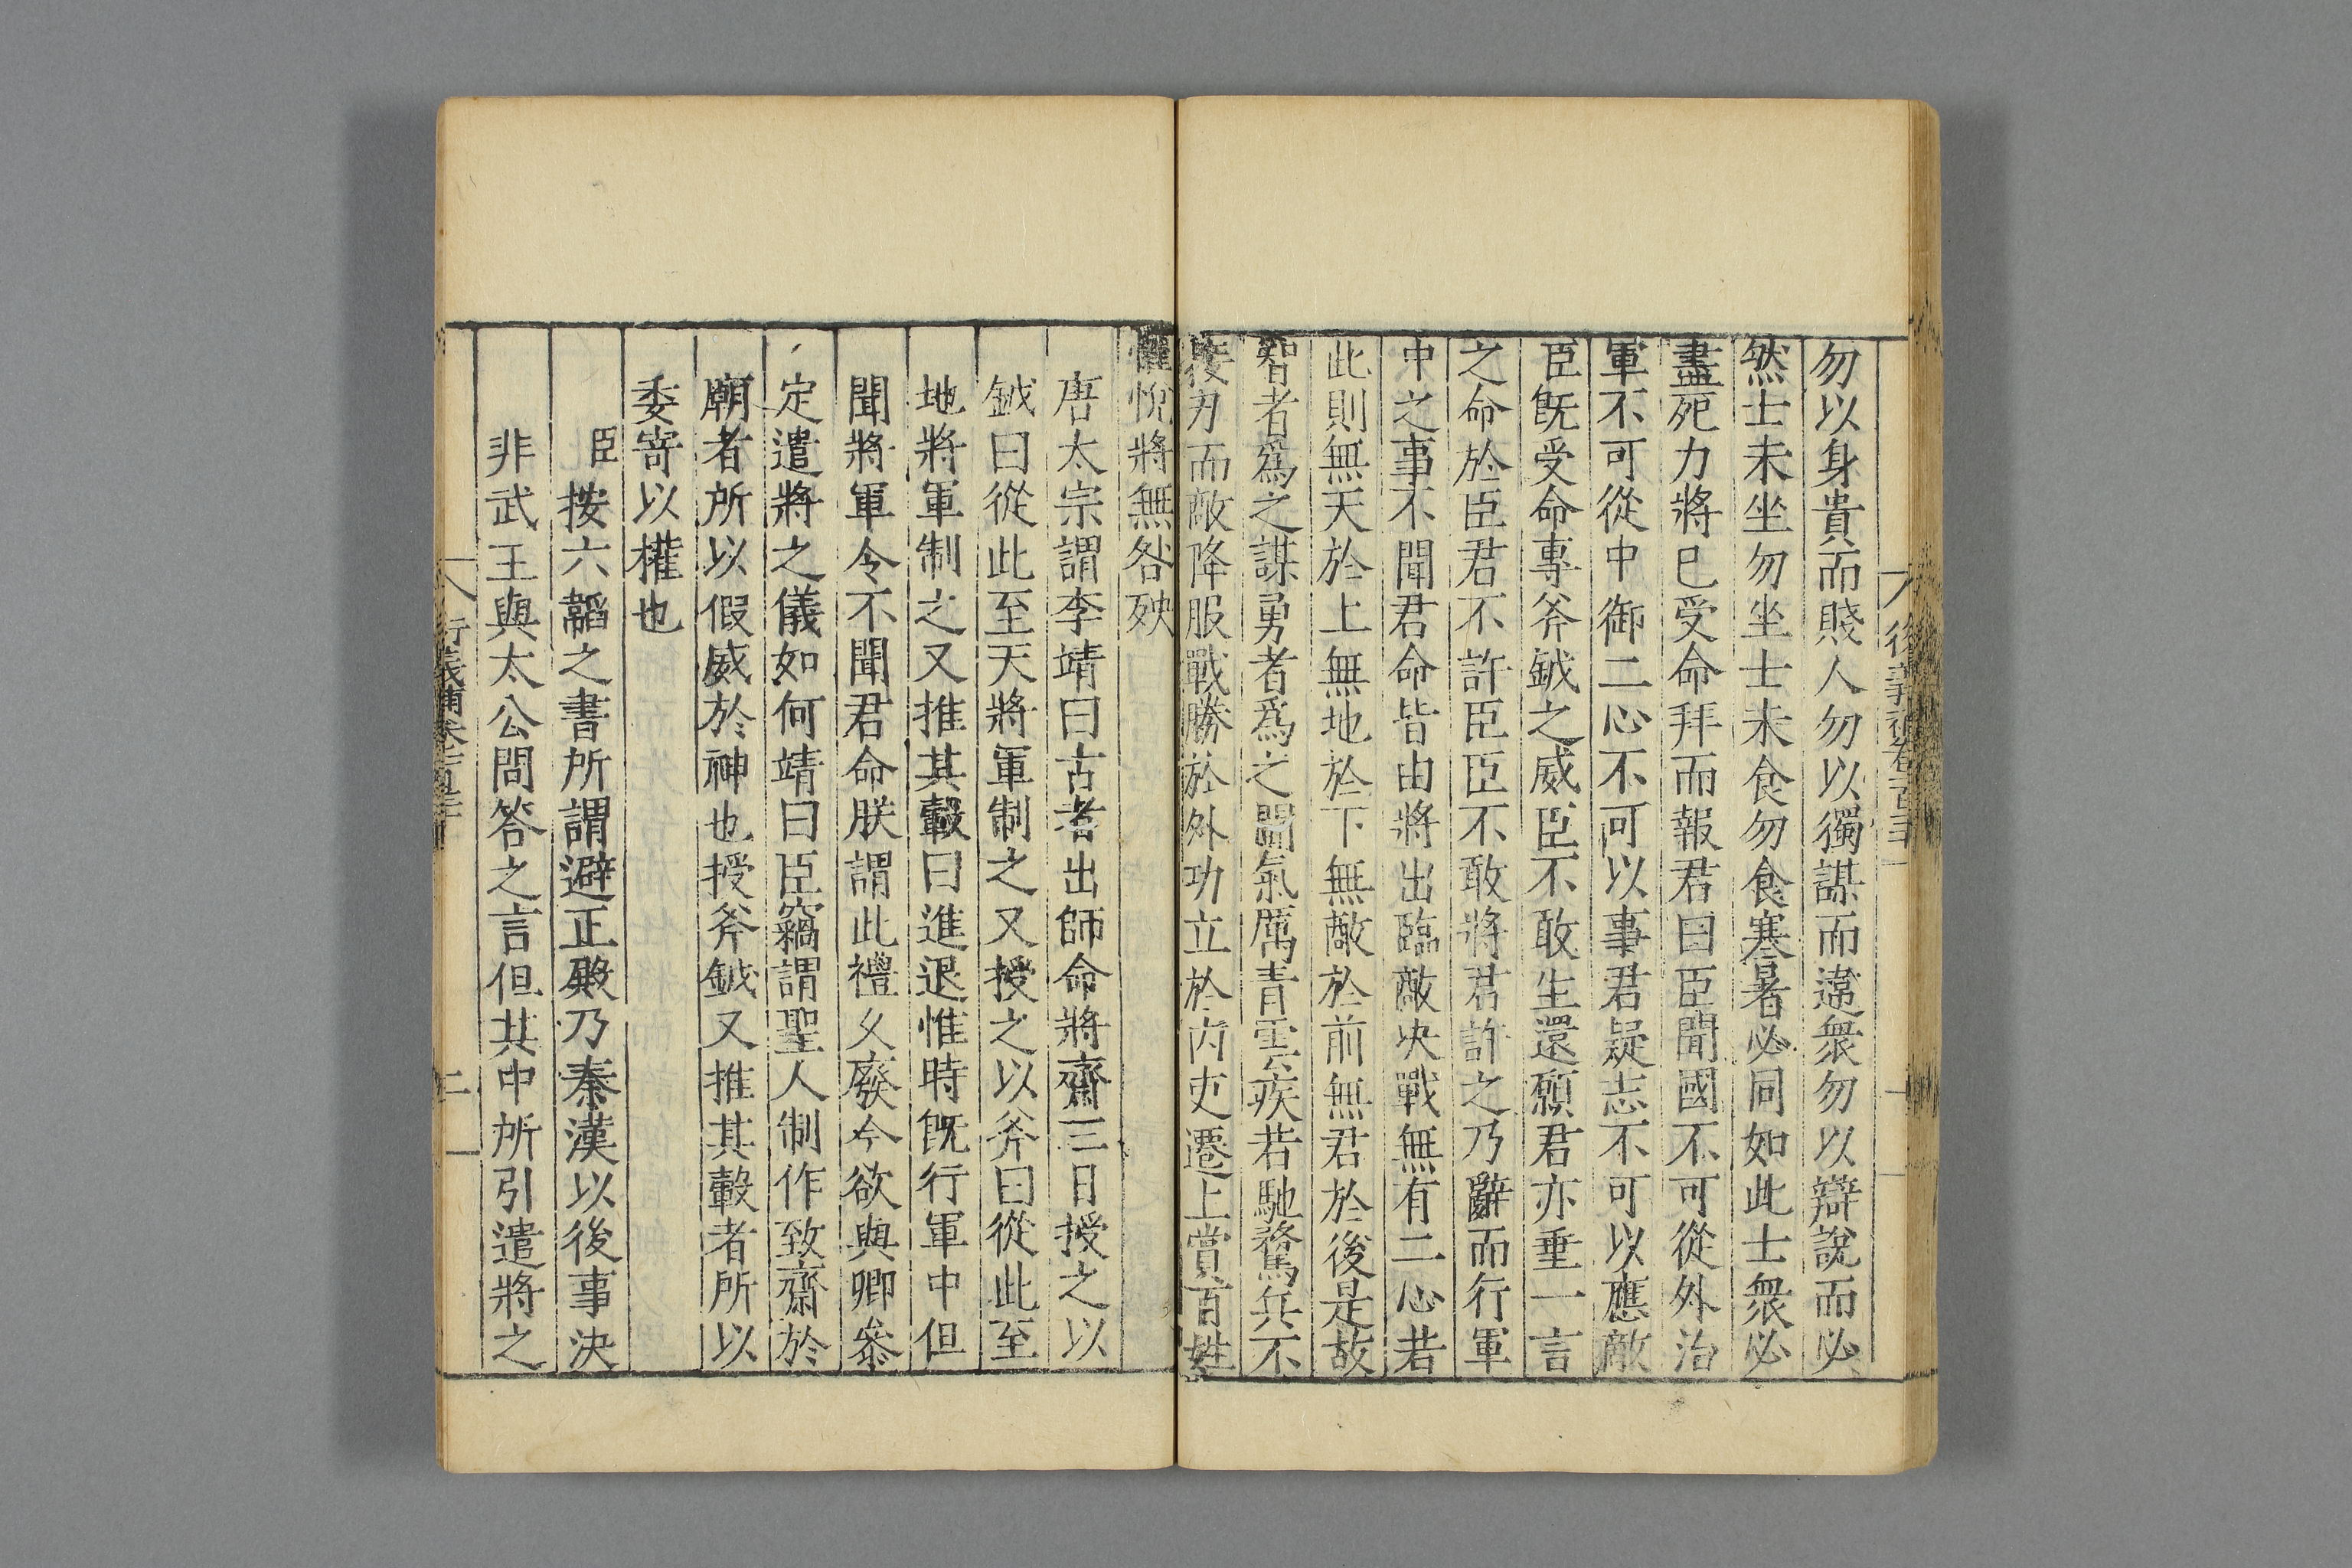 勿以身貴而賤人勿以獨謀而違衆勿以辯說而必
然士未坐勿坐士未食勿食寒暑必同如此士衆必
盡死力將已受命拜而報君曰臣聞國不可從外治
軍不可從中御二心不可以事君疑志不可以應敵
臣既受命專斧鉞之威臣不敢生還願君亦垂一言
之命於臣君不許臣臣不敢將君許之乃辭而行軍
中之事不聞君命皆由將出臨敵决戰無有二心若
此則無天於上無地於下無敵於前無君於後是故
智者爲之謀勇者爲之鬭氣厲青雲疾若馳騖兵不
接刃而敵降服戰勝於外功立於内吏遷上賞百姓
懽悅將無咎殃
唐太宗謂李靖曰古者出師命將齋三日授之以
鉞曰從此至天將軍制之又授之以斧曰從此至
地將軍制之又推其轂曰進退惟時既行軍中但
聞將軍令不聞君命朕謂此禮久廢今欲與卿參
定遣將之儀如何靖曰臣竊謂聖人制作致齋於
廟者所以假威於神也授斧鉞又推其轂者所以
委寄以權也
臣按六韜之書所謂避正殿乃秦漢以後事决
非武王與太公問答之言但其中所引遣將之
行義補卷
二